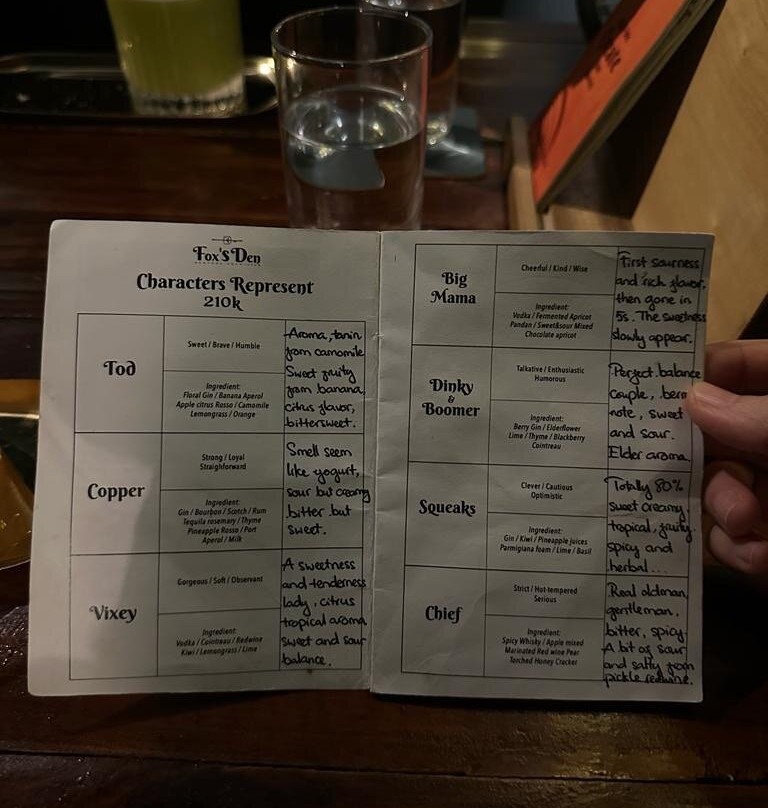 Fox's Den
Characters Represent
210k
Tod
Sweet / Brave / Humble
Ingredient:
Floral Gin / Banana Aperol
Apple citrus Rosso / Camomile
Lemongrass / Orange
Aroma, tanin
from camomile
Sweet fruity
from banana,
citrus flavor,
bittersweet.
Copper
Strong / Loyal
Straighforward
Ingredient:
Gin / Bourbon / Scotch / Rum
Tequila rosemary / Thyme
Pineapple Rosso / Port
Aperol / Milk
Smell seem
like yogurt,
sour but creamy
bitter but
sweet.
Vixey
Gorgeous / Soft / Observant
Ingredient:
Vodka / Cointreau / Redwine
Kiwi / Lemongrass / Lime
A sweetness
and tenderness
lady, citrus
tropical aroma
sweet and sour
balance.
Big
Mama
Cheerful / Kind / Wise
Ingredient:
Vodka / Fermented Apricot
Pandan / Sweet&sour Mixed
Chocolate apricot
First sourness
and rich flavor,
then gone in
5s. The sweetness
slowly appear.
Dinky
&
Boomer
Talkative / Enthusiastic
Humorous
Ingredient:
Berry Gin / Elderflower
Lime / Thyme / Blackberry
Cointreau
Perfect balance
couple, berry
note, sweet
and sour.
Elder aroma.
Squeaks
Clever / Cautious
Optimistic
Ingredient:
Gin / Kiwi / Pineapple juices
Parmigiana foam / Lime / Basil
Totally 80%
sweet creamy.
tropical, fruity.
spicy and
herbal...
Chief
Strict / Hot-tempered
Serious
Ingredient:
Spicy Whisky / Apple mixed
Marinated Red wine Pear
Torched Honey Cracker
Real oldman
gentleman.
bitter, spicy.
A bit of sour
and salty from
pickle redwine.